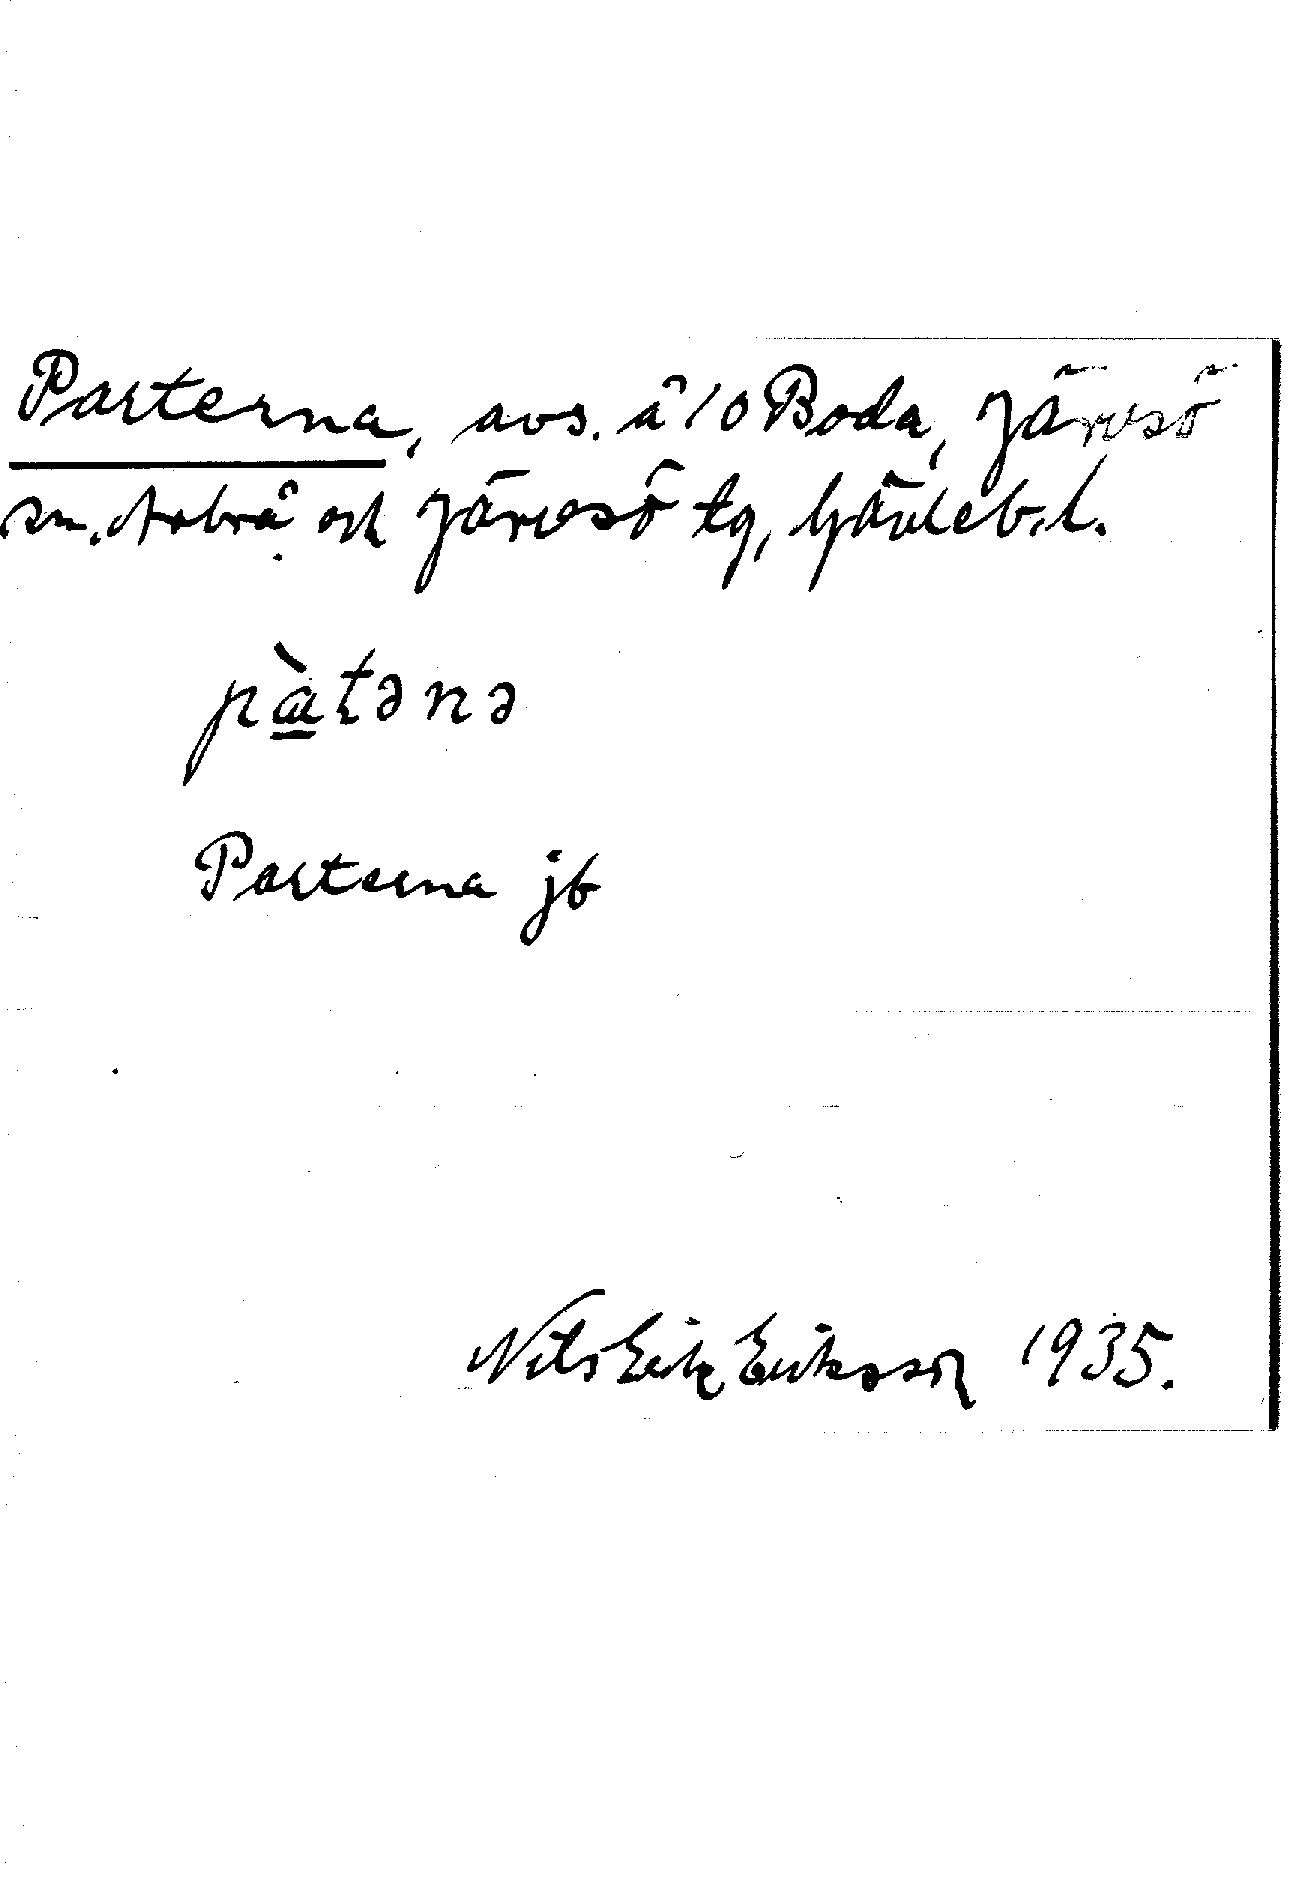 Parterna, avs. å 10 Boda, Järvsö
sn. Arbrå och Järvsö tg, Gävleb. l.
pàtənə
Parterna jb
Nils Erik Eriksson 1935.